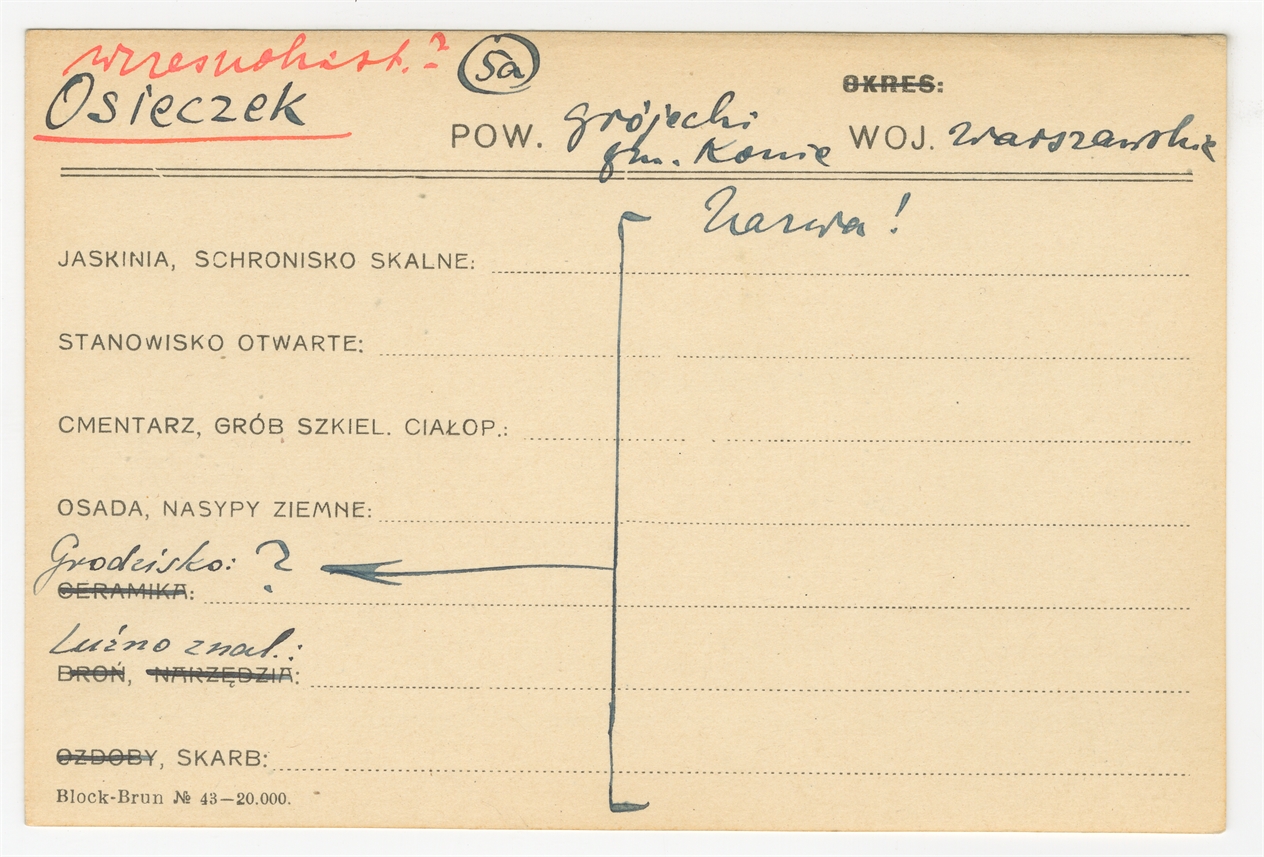 wczesnohist.?
Osieczek
5a
OKRES:
POW. grójecki WOJ. warszawskie
gm. Konie
Nazwa!
JASKINIA, SCHRONISKO SKALNE:
STANOWISKO OTWARTE:
CMENTARZ, GRÓB SZKIEL. CIAŁOP.:
OSADA, NASYPY ZIEMNE:
Grodzisko: ?
CERAMIKA:
Luźno znal.:
BROŃ, NARZĘDZIA:
OZDOBY, SKARB:
Block-Brun № 43—20.000.